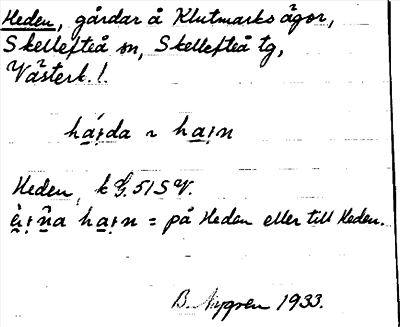 Heden, gårdar å Klutmarks ägor,
Skellefteå sn, Skellefteå tg,
Västerb. l.
há̤ꞎda ~ ha̤ꞎn
Heden, k G. 51 SV.
ha̤ꞎn = på Heden eller till Heden.
B. Nygren 1933.